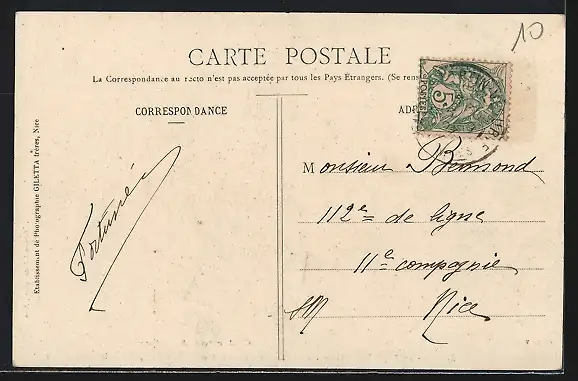 10
CARTE POSTALE
La Correspondance au recto n'est pas acceptée par tous les Pays Etrangers. (Se rens
CORRESPONDANCE
5
POSTES
Etablissement de Photographie GILETTA frères, Nice
Fortuné
Monsieur Bermond
112e de ligne
11e compagnie
SM Nice